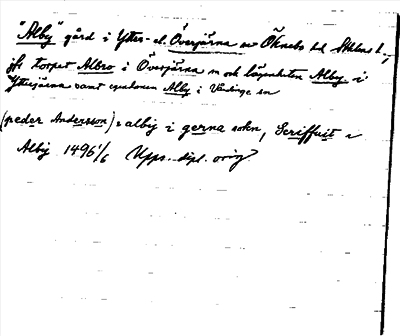 "Alby" gård i Ytter- el. Överjärna sn Öknebo hd Sthlms l.,
jfr torpet Albro i Överjärna sn och lägenheten Alby i
Ytterjärna samt egendomen Alby i Vårdinge sn
(peder Andersson) i albij i gerna sokn, Scriffuit i
Albij 1496 1/6 Upps. dipl. orig.